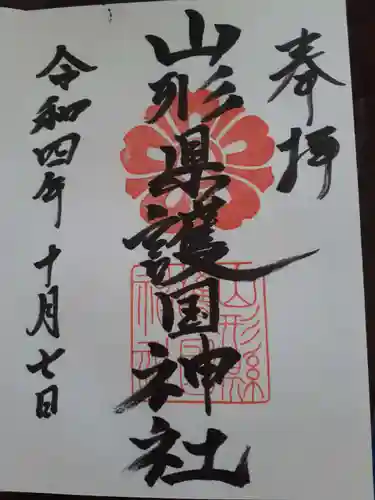 奉拝
山形県護国神社
令和四年十月七日